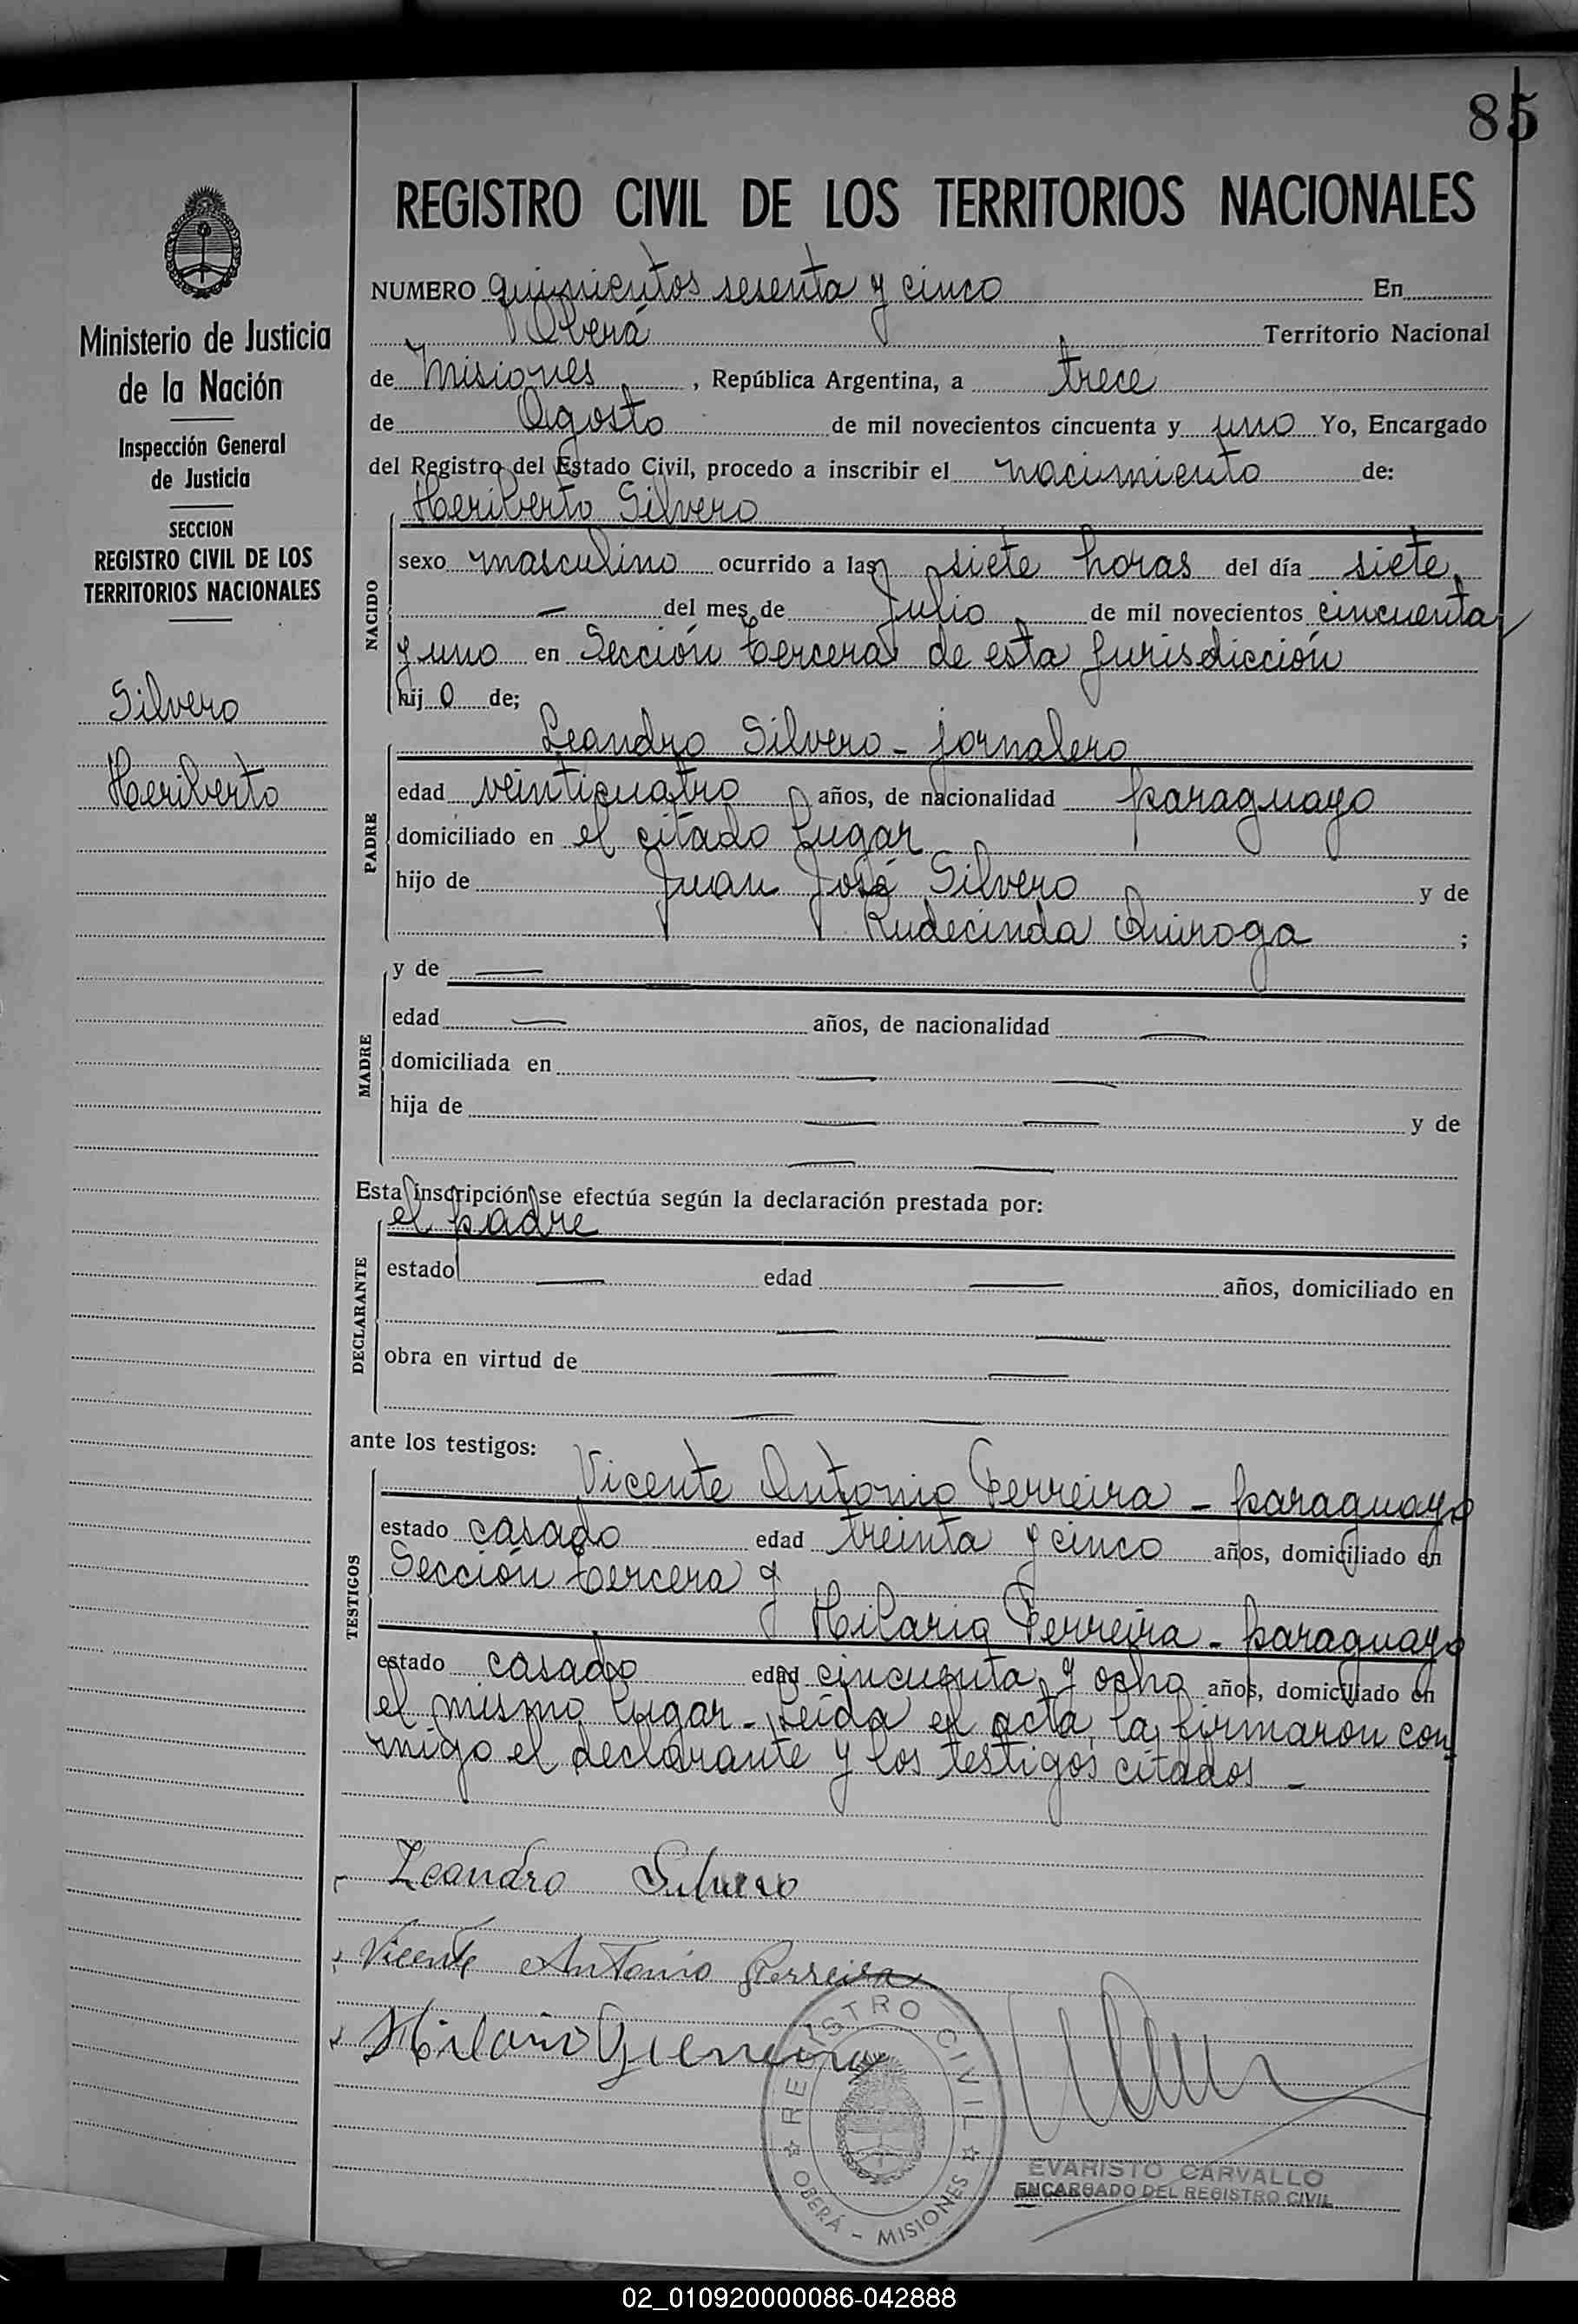 85
REGISTRO CIVIL DE LOS TERRITORIOS NACIONALES
Ministerio de Justicia
de la Nación
Inspección General
de Justicia
SECCION
REGISTRO CIVIL DE LOS
TERRITORIOS NACIONALES
Silvero
Heriberto
NUMERO quinientos sesenta y cinco En
Oberá Territorio Nacional
de Misiones, República Argentina, a trece
de Agosto de mil novecientos cincuenta y uno Yo, Encargado
del Registro del Estado Civil, procedo a inscribir el nacimiento de:
Heriberto Silvero
NACIDO
sexo masculino ocurrido a las siete horas del día siete
— del mes de Julio de mil novecientos cincuenta
y uno en Sección tercera de esta jurisdicción
hij o de;
Leandro Silvero - jornalero
PADRE
edad veinticuatro años, de nacionalidad paraguayo
domiciliado en el citado lugar
hijo de Juan José Silvero y de
Rudecinda Quiroga ;
MADRE
y de —
edad — años, de nacionalidad —
domiciliada en — —
hija de — — y de
— —
Esta inscripción se efectúa según la declaración prestada por:
el padre
DECLARANTE
estado — edad — años, domiciliado en
— —
obra en virtud de — —
— —
ante los testigos:
Vicente Antonio Ferreira - paraguayo
TESTIGOS
estado casado edad treinta y cinco años, domiciliado en
Sección tercera y
Hilario Ferreira - paraguayo
estado casado edad cincuenta y ocho años, domiciliado en
el mismo lugar - Leída el acta, la firmaron con
migo el declarante y los testigos citados -
Leandro Silvero
Vicente Antonio Ferreira
Hilario Ferreira
REGISTRO CIVIL
OBERÁ - MISIONES
EVARISTO CARVALLO
ENCARGADO DEL REGISTRO CIVIL
02_010920000086-042888